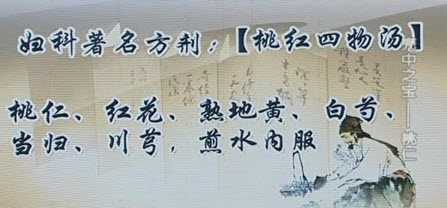 妇科著名方剂：【桃红四物汤】
桃仁、红花、熟地黄、白芍、
当归、川芎，煎水内服
中之宝——桃仁